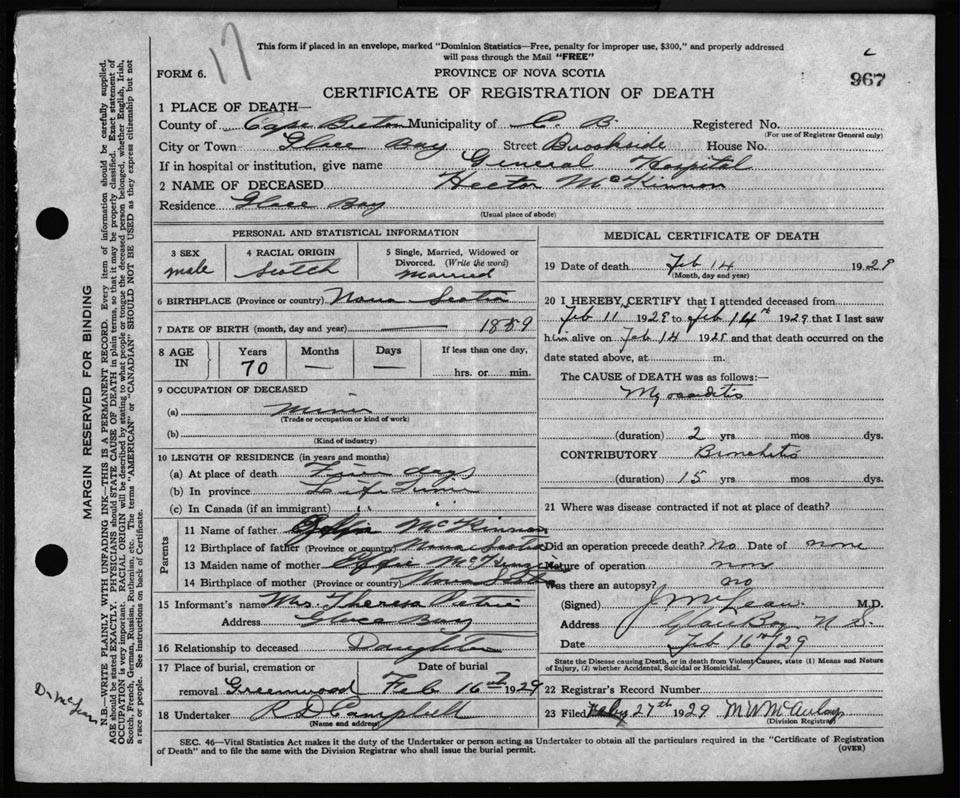 17
This form if placed in an envelope, marked "Dominion Statistics—Free, penalty for improper use, $300," and properly addressed
will pass through the Mail "FREE"
FORM 6.
PROVINCE OF NOVA SCOTIA
967
CERTIFICATE OF REGISTRATION OF DEATH
1 PLACE OF DEATH—
County of Cape Breton Municipality of C. B. Registered No.
(For use of Registrar General only)
City or Town Glace Bay Street Brookside House No.
If in hospital or institution, give name General Hospital
2 NAME OF DECEASED Hector McKinnon
Residence Glace Bay
(Usual place of abode)
PERSONAL AND STATISTICAL INFORMATION
3 SEX
male
4 RACIAL ORIGIN
Scotch
5 Single, Married, Widowed or
Divorced. (Write the word)
Married
6 BIRTHPLACE (Province or country) Nova Scotia
7 DATE OF BIRTH (month, day and year) — 1859
8 AGE
IN
Years
70
Months
—
Days
—
If less than one day,
hrs. or min.
9 OCCUPATION OF DECEASED
(a) Miner
(Trade or occupation or kind of work)
(b)
(Kind of industry)
10 LENGTH OF RESIDENCE (in years and months)
(a) At place of death days
(b) In province Life Time
(c) In Canada (if an immigrant) " "
Parents
11 Name of father McKinnon
12 Birthplace of father (Province or country) Nova Scotia
13 Maiden name of mother Effie McKenzie
14 Birthplace of mother (Province or country) Nova Scotia
15 Informant's name Mrs. Theresa Petrie
Address Glace Bay
16 Relationship to deceased Daughter
17 Place of burial, cremation or
removal Greenwood
Date of burial
Feb 16 1929
18 Undertaker R D Campbell
(Name and address)
MEDICAL CERTIFICATE OF DEATH
19 Date of death Feb 14 1929
(Month, day and year)
20 I HEREBY CERTIFY that I attended deceased from
Feb 11 1929 to Feb 14 1929 that I last saw
him alive on Feb 14 1929 and that death occurred on the
date stated above, at m.
The CAUSE of DEATH was as follows:—
Myocarditis
(duration) 2 yrs mos dys.
CONTRIBUTORY Bronchitis
(duration) 15 yrs mos dys.
21 Where was disease contracted if not at place of death?
Did an operation precede death? no Date of none
Nature of operation none
Was there an autopsy? no
(Signed) J McLean M.D.
Address Glace Bay N S.
Date Feb 16th/29
State the Disease causing Death, or in death from Violent Causes, state (1) Means and Nature
of Injury, (2) whether Accidental, Suicidal or Homicidal.
22 Registrar's Record Number
23 Filed Feby 27th 1929 M W McAulay
(Division Registrar)
SEC. 46—Vital Statistics Act makes it the duty of the Undertaker or person acting as Undertaker to obtain all the particulars required in the "Certificate of Registration
of Death" and to file the same with the Division Registrar who shall issue the burial permit.
(OVER)
MARGIN RESERVED FOR BINDING
N.B.—WRITE PLAINLY WITH UNFADING INK—THIS IS A PERMANENT RECORD. Every item of information should be carefully supplied.
AGE should be stated EXACTLY. PHYSICIANS should STATE CAUSE OF DEATH in plain terms, so that it may be properly classified. Exact statement of
OCCUPATION is very important. RACIAL ORIGIN will be described by stating to what people or tongue the deceased person belonged, whether English, Irish,
Scotch, French, German, Russian, Ruthenian, etc. The terms "AMERICAN" or "CANADIAN" SHOULD NOT BE USED as they express citizenship but not
a race or people. See instructions on back of Certificate.
Dr McLean